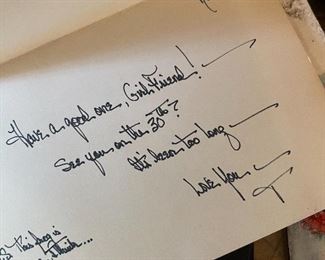 Have a good one, Girl Friend!
See you on the 30th?
It's been too long
Love You
This bag is